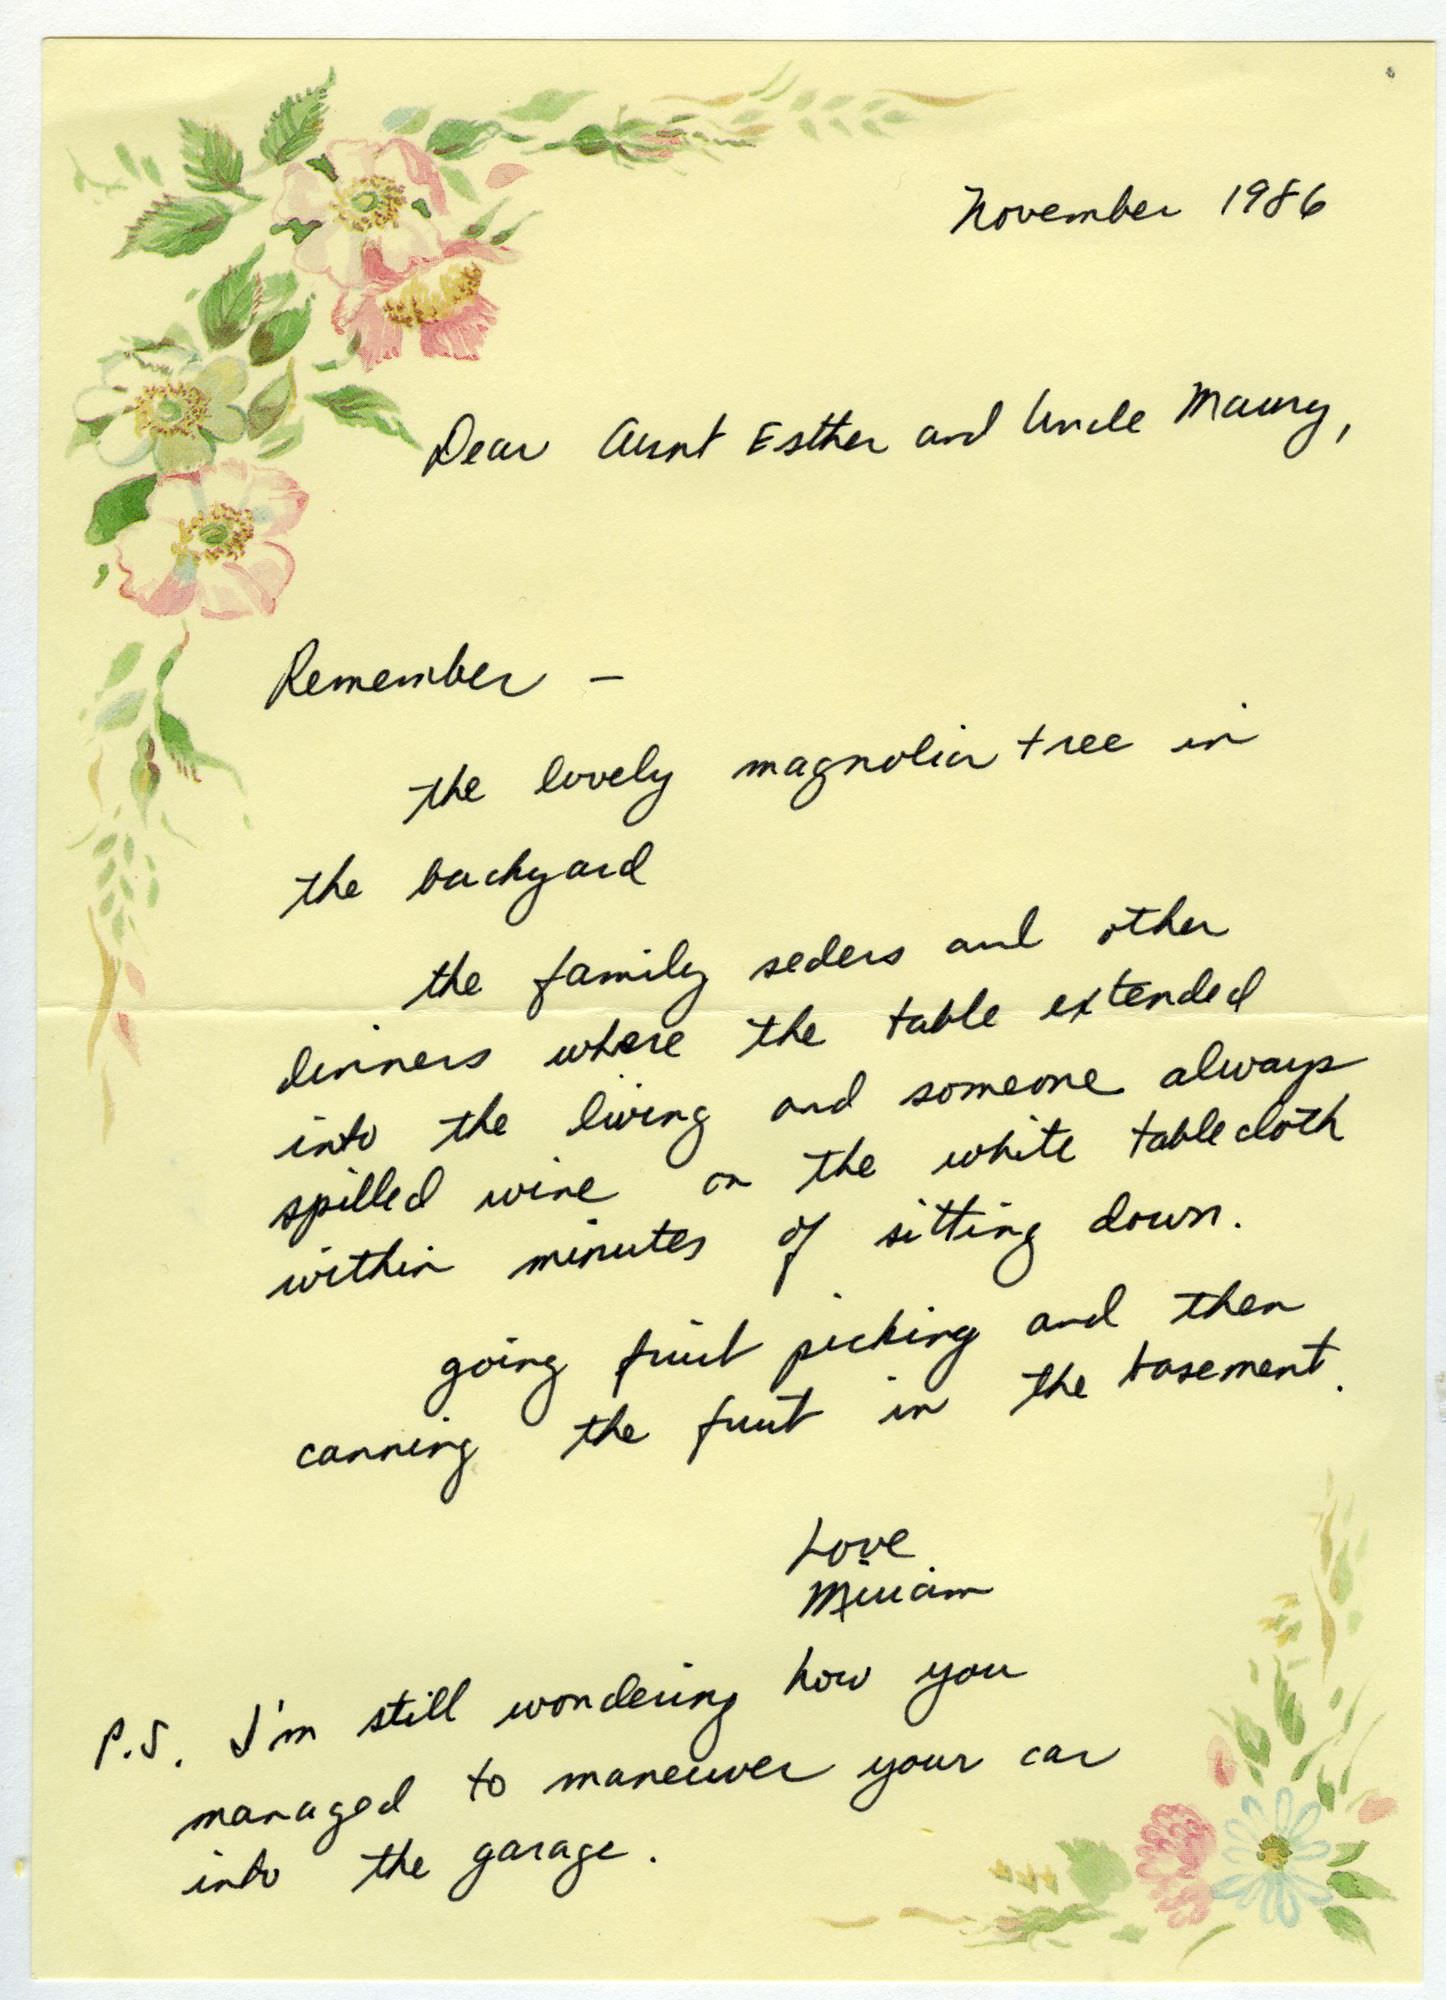 November 1986
Dear Aunt Esther and Uncle Maury,
Remember —
the lovely magnolia tree in
the backyard
the family seders and other
dinners where the table extended
into the living and someone always
spilled wine on the white tablecloth
within minutes of sitting down.
going fruit picking and then
canning the fruit in the basement.
Love
Miriam
P.S. I'm still wondering how you
managed to maneuver your car
into the garage.